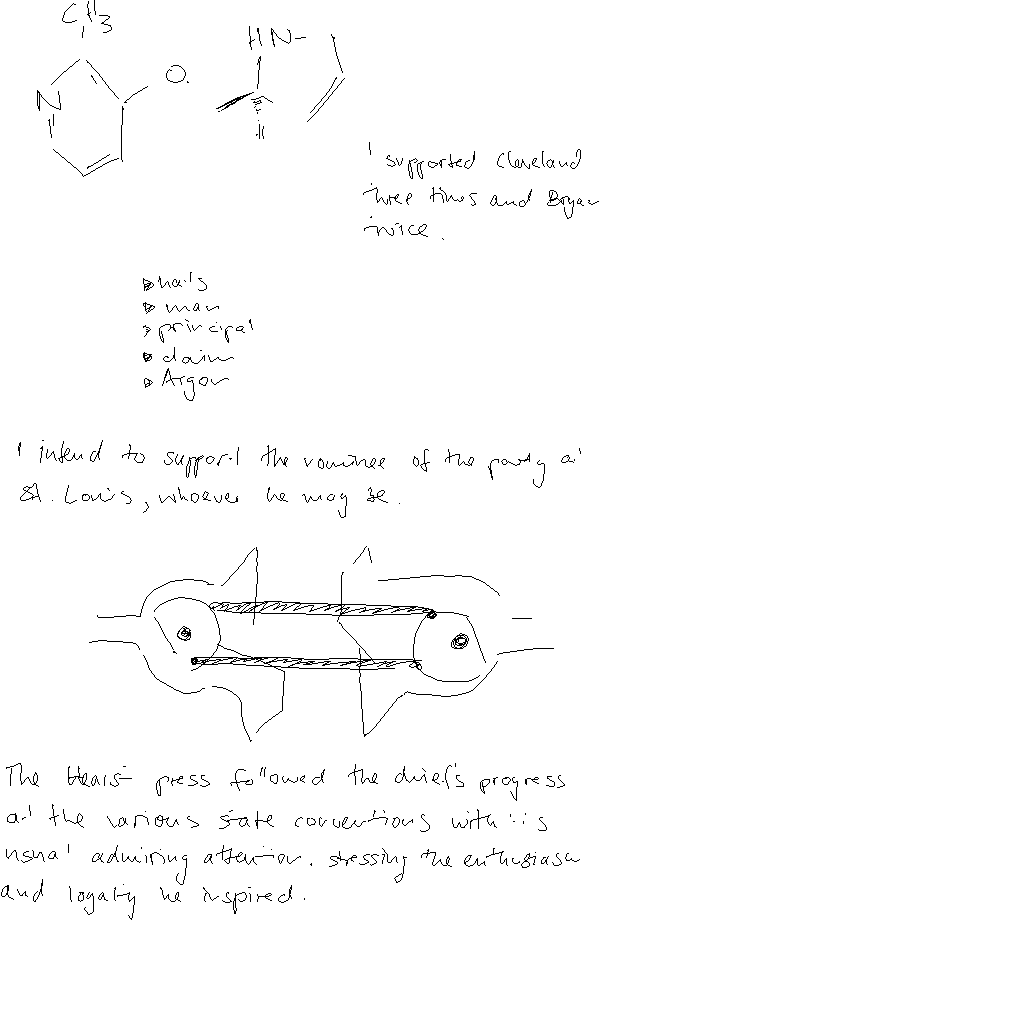 CH3
N
O
HN
H
I supported Cleveland
three times and Bryan
twice.
nails
man
principal
claim
Argon
I intend to support the nominee of the party at
St. Louis, whoever he may be.
The Hearst press followed the chief's progress
at the various state conventions with its
usual admiring attention. stressing the enthusiasm
and loyalty he inspired.